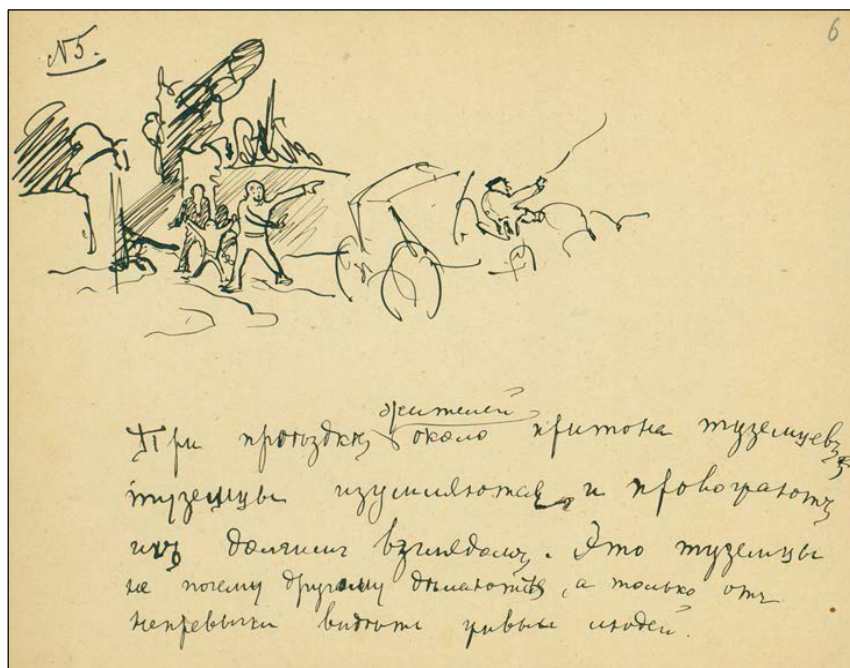 N5.
6
жителей
При проѣздкѣ около притона туземцевъ,
туземцы изумляются и провожаютъ
ихъ долгимъ взглядомъ. Это туземцы
не почему другому дѣлаютъ, а только отъ
непревычки видѣть живыхъ людей.